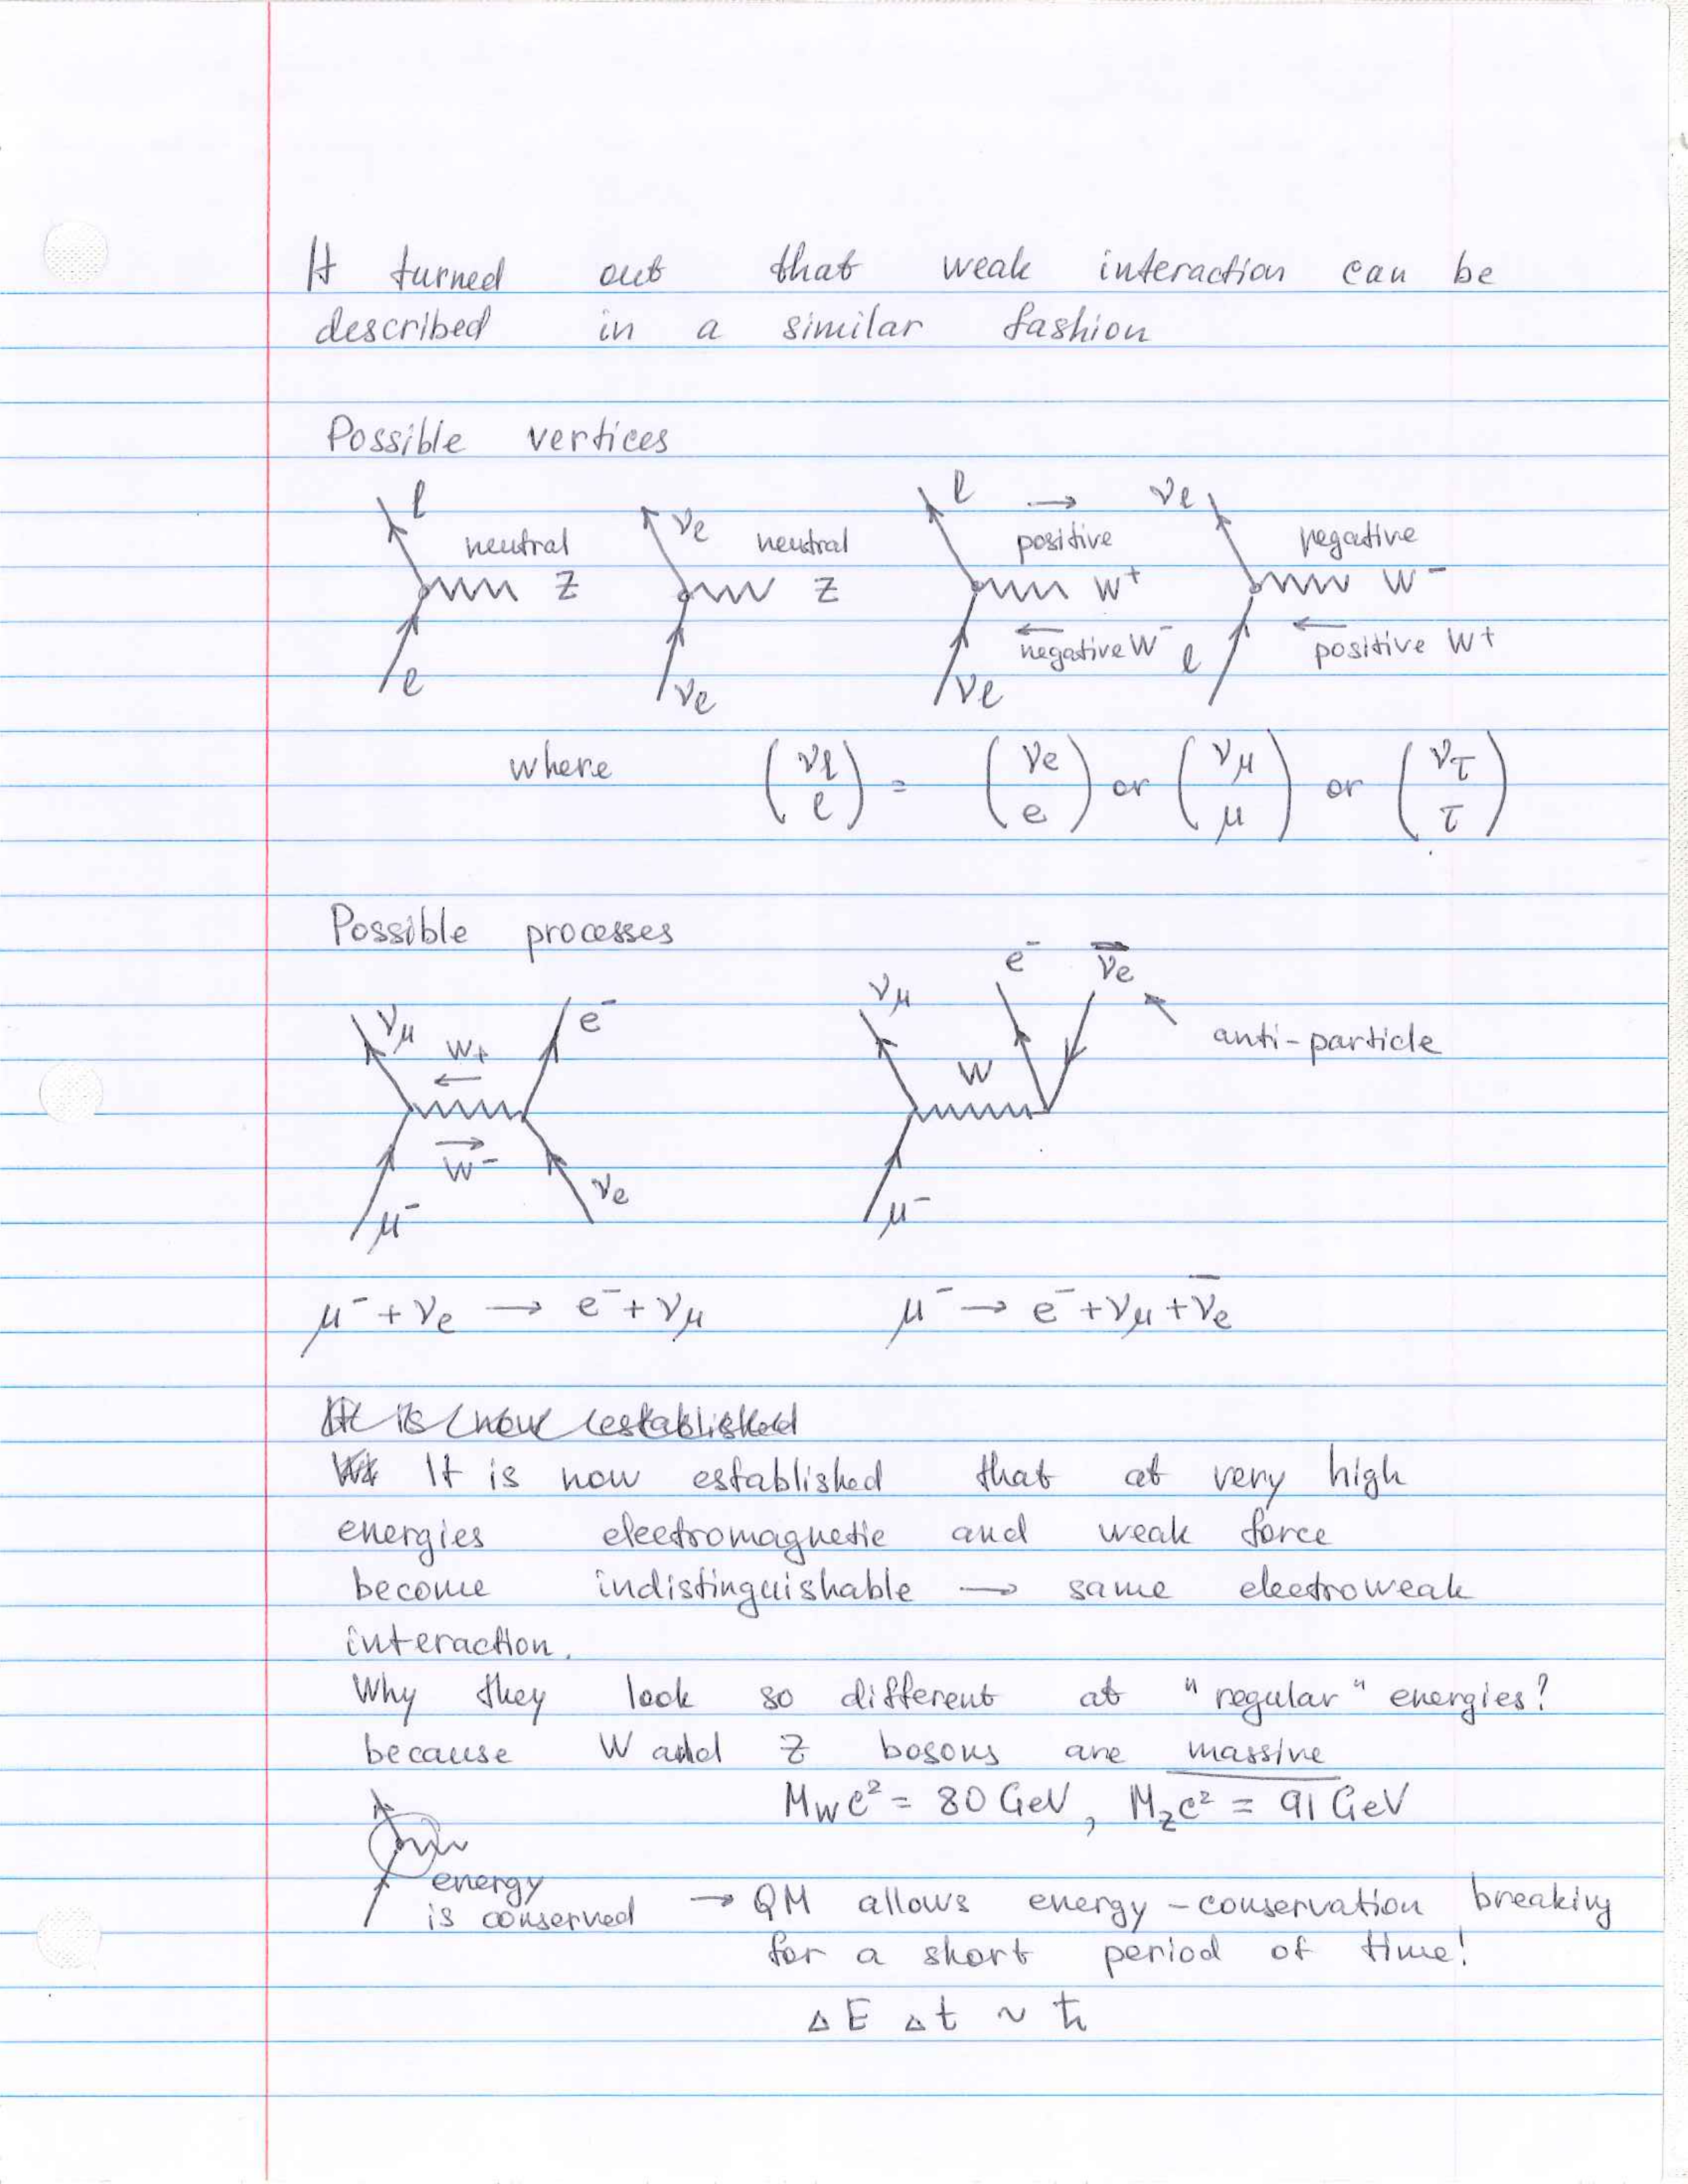 It turned out that weak interaction can be
described in a similar fashion
Possible vertices
l neutral Z l
νl neutral Z νl
l → positive W+ ← negative W- νl
νl negative W- ← positive W+ l
where (νl l) = (νe e) or (νμ μ) or (ντ τ)
Possible processes
νμ W+ ← e- → W- μ- νe
νμ e- ν̅e W μ- anti-particle
μ- + νe → e- + νμ
μ- → e- + νμ + ν̅e
It is now established
It is now established that at very high
energies electromagnetic and weak force
become indistinguishable → same electroweak
interaction.
Why they look so different at "regular" energies?
because W and Z bosons are massive
MWc² = 80 GeV, MZc² = 91 GeV
energy
is conserved
→ QM allows energy-conservation breaking
for a short period of time!
ΔE Δt ~ ħ